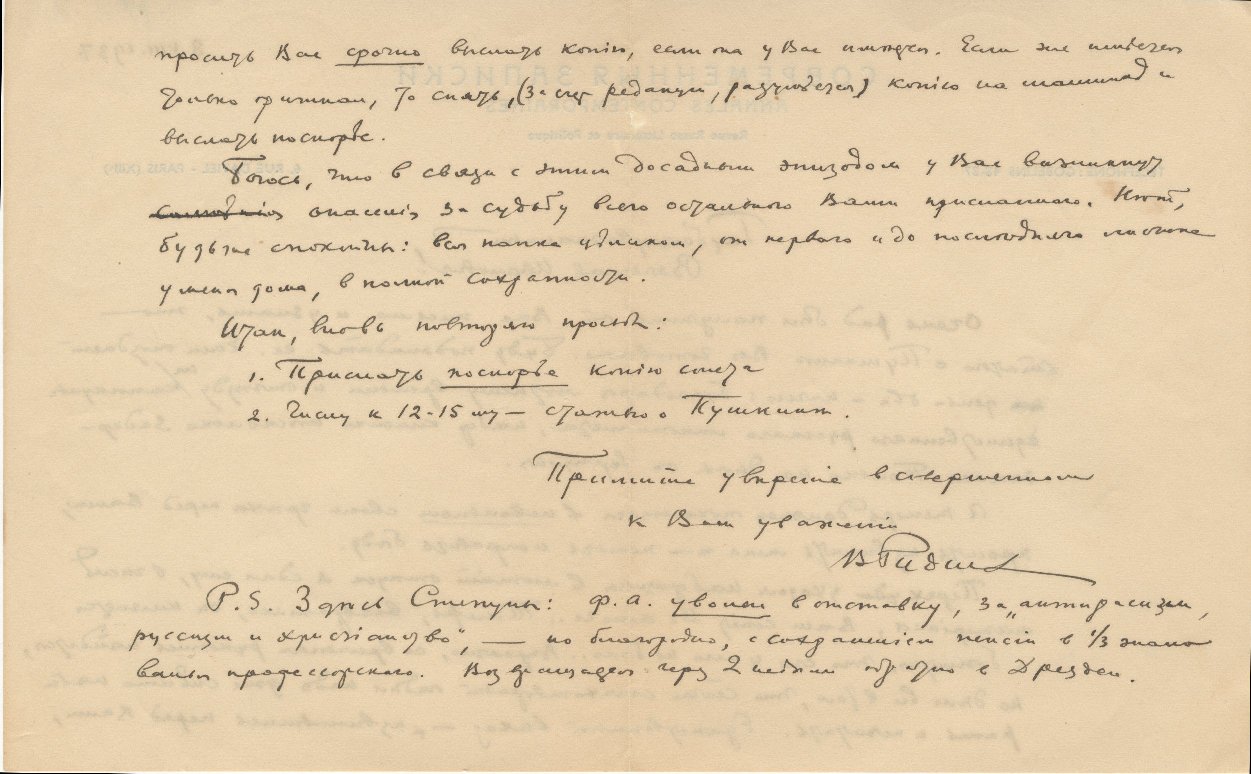 просить Вас срочно выслать копію, если она у Вас имѣется. Если же имѣется
только оригинал, то снять, (за счет редакціи, разумѣется) копію на машинкѣ и
выслать поскорѣе.
Боюсь, что в связи с этим досадным эпизодом у Вас возникнут
опасенія за судьбу всего остального Вами присланного. Нѣт,
будьте спокойны: вся папка цѣликом, от первого и до послѣдняго листочка
у меня дома, в полной сохранности.
Итак, вновь повторяю просьбы:
1. Прислать поскорѣе копію сонета
2. Числу к 12-15 му — статью о Пушкинѣ.
Примите увѣреніе в совершенном
к Вам уваженіи
В Руднев
P.S. Здѣсь Степуны: Ф.А. уволен в отставку, за „антирасизм,
руссизм и христіанство", — но благородно, с сохраненіем пенсіи в 1/3
профессорского. Возвращается через 2 недѣли обратно в Дрезден.